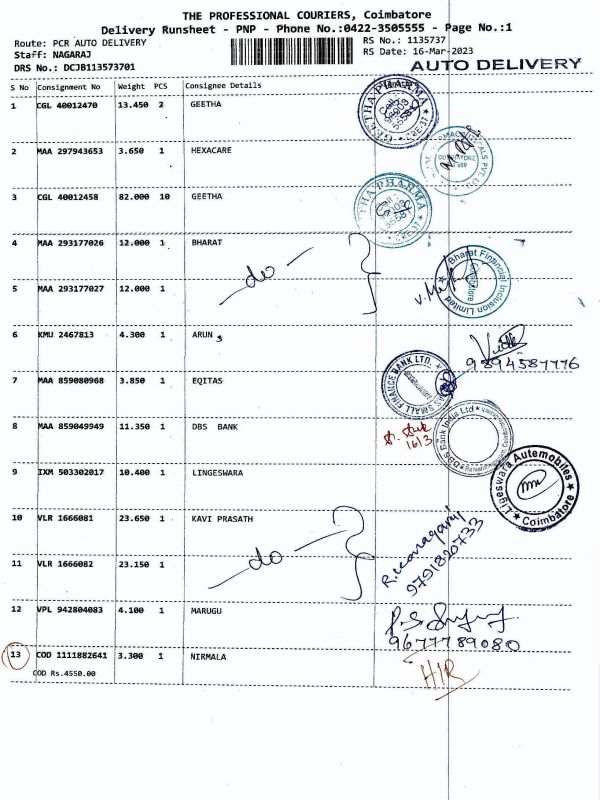 THE PROFESSIONAL COURIERS, Coimbatore
Delivery Runsheet - PNP - Phone No.:0422-3505555 - Page No.:1
Route: PCR AUTO DELIVERY
RS No.: 1135737
Staff: NAGARAJ
RS Date: 16-Mar-2023
DRS No.: DCJB113573701
AUTO DELIVERY
S No Consignment No Weight PCS Consignee Details
1 CGL 40012470 13.450 2 GEETHA
GEETHA PHARMA
2 MAA 297943653 3.650 1 HEXACARE
3 CGL 40012458 82.000 10 GEETHA
PHARMA
4 MAA 293177026 12.000 1 BHARAT
do
Bharat Financial Inclusion Limited
Coimbatore
5 MAA 293177027 12.000 1
6 KMU 2467813 4.300 1 ARUN
9894587776
7 MAA 859080968 3.850 1 EQITAS
SMALL FINANCE BANK LTD.
8 MAA 859049949 11.350 1 DBS BANK
DBS Bank India Ltd
16/3
9 IXM 503302017 10.400 1 LINGESWARA
Ligeswara Automobiles
Coimbatore
10 VLR 1666081 23.650 1 KAVI PRASATH
do
R. Kanagaraj
9791820733
11 VLR 1666082 23.150 1
12 VPL 942804083 4.100 1 MARUGU
9677789080
13 COD 1111882641 3.300 1 NIRMALA
COD Rs.4550.00
H/R